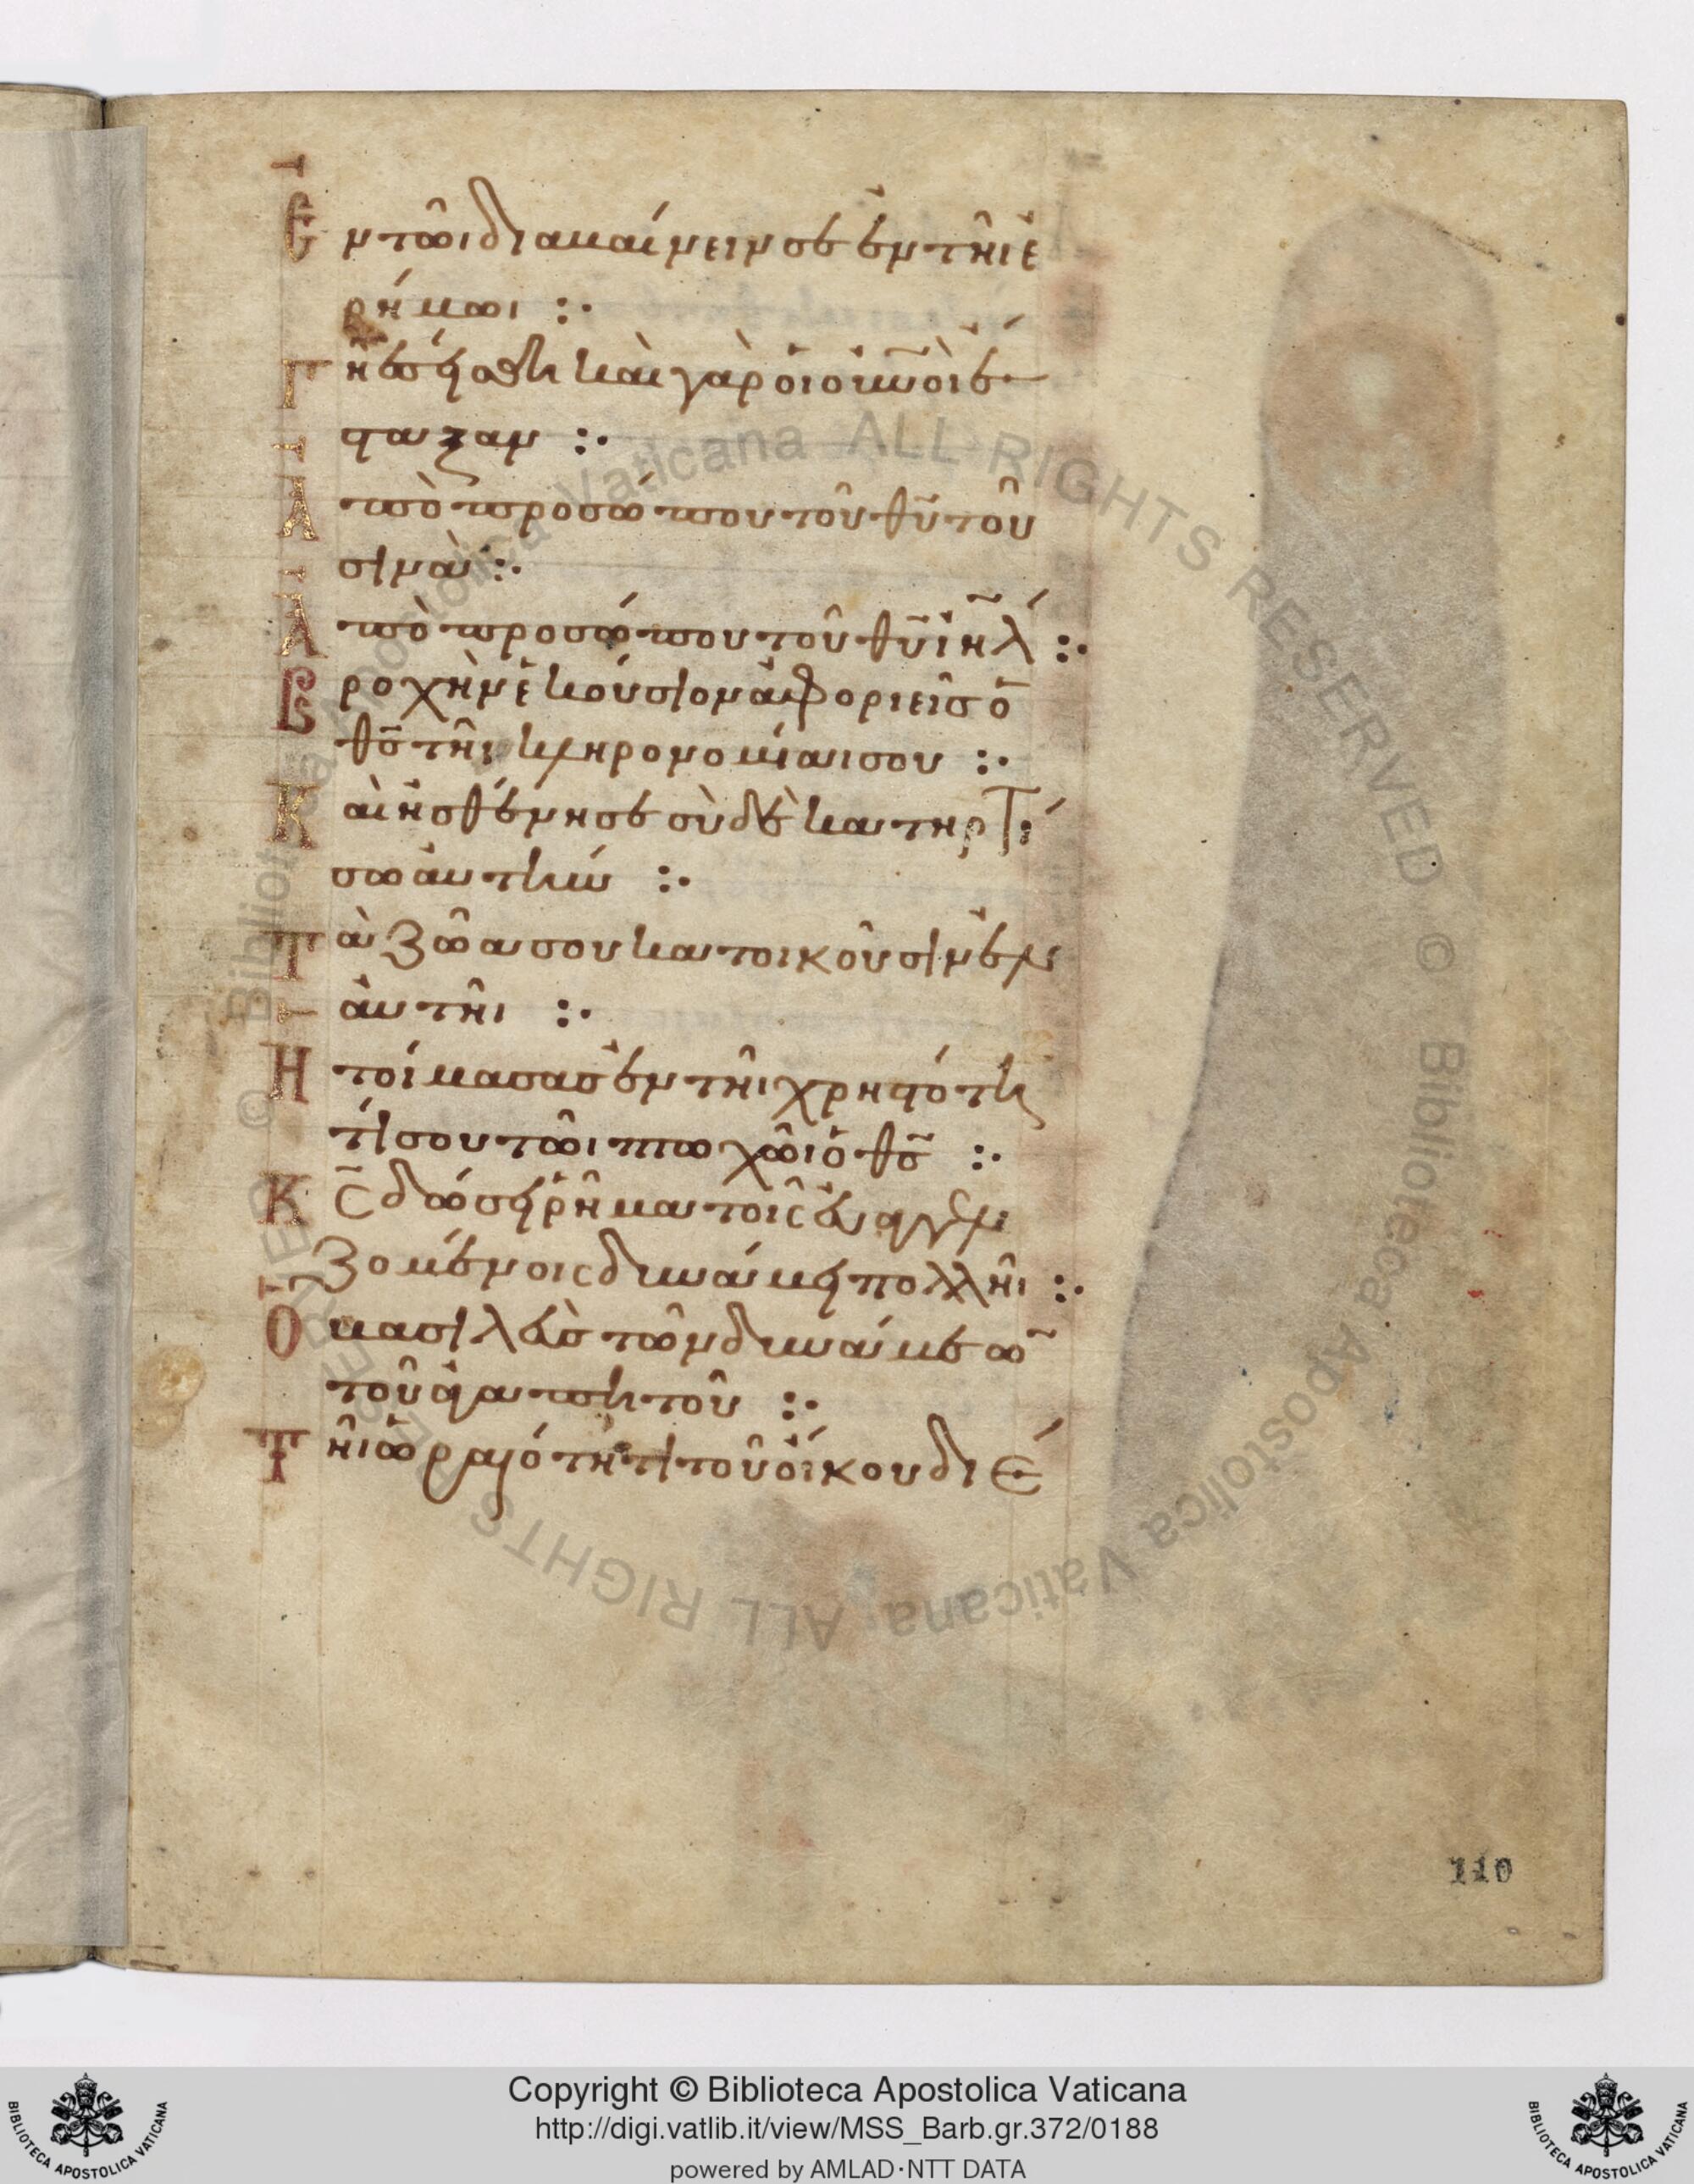 Ἐν τῶι διαβαίνειν σε ἐν τῆι ἐ
ρήμωι :·
Γῆ ἐσείσθη καὶ γὰρ οἱ οὐνοὶ ἔ
σταξαν :·
Ἀπὸ προσώπου τοῦ θῡ τοῦ
σινὰ :·
Ἀπὸ προσώπου τοῦ θῡ ἰηλ :·
Βροχὴν ἑκούσιον ἀφοριεῖσ ὁ
θσ τῆι κληρονομίαι σου :·
Καὶ ἠσθένησε σὺ δὲ κατηρτί
σω αὐτήν :·
Τὰ ζῶα σου κατοικοῦσιν ἐν
αὐτῆι :·
Ἡτοίμασασ ἐν τῆι χρηστότη
τί σου τῶι πτωχῶι ὁ θσ :·
Κς δώσει ῥῆμα τοῖς εὐαγγελι
ζομένοις δυνάμει πολλῆι :·
Ὁ βασιλεὺσ τῶν δυνάμεω
τοῦ ἀγαπητοῦ :·
Τῆι ὡραιότητι τοῦ οἴκου διε
110
© Biblioteca Apostolica Vaticana ALL RIGHTS RESERVED © Biblioteca Apostolica Vaticana ALL RIGHTS RESERVED
Copyright © Biblioteca Apostolica Vaticana
http://digi.vatlib.it/view/MSS_Barb.gr.372/0188
powered by AMLAD·NTT DATA
BIBLIOTECA APOSTOLICA VATICANA
BIBLIOTECA APOSTOLICA VATICANA